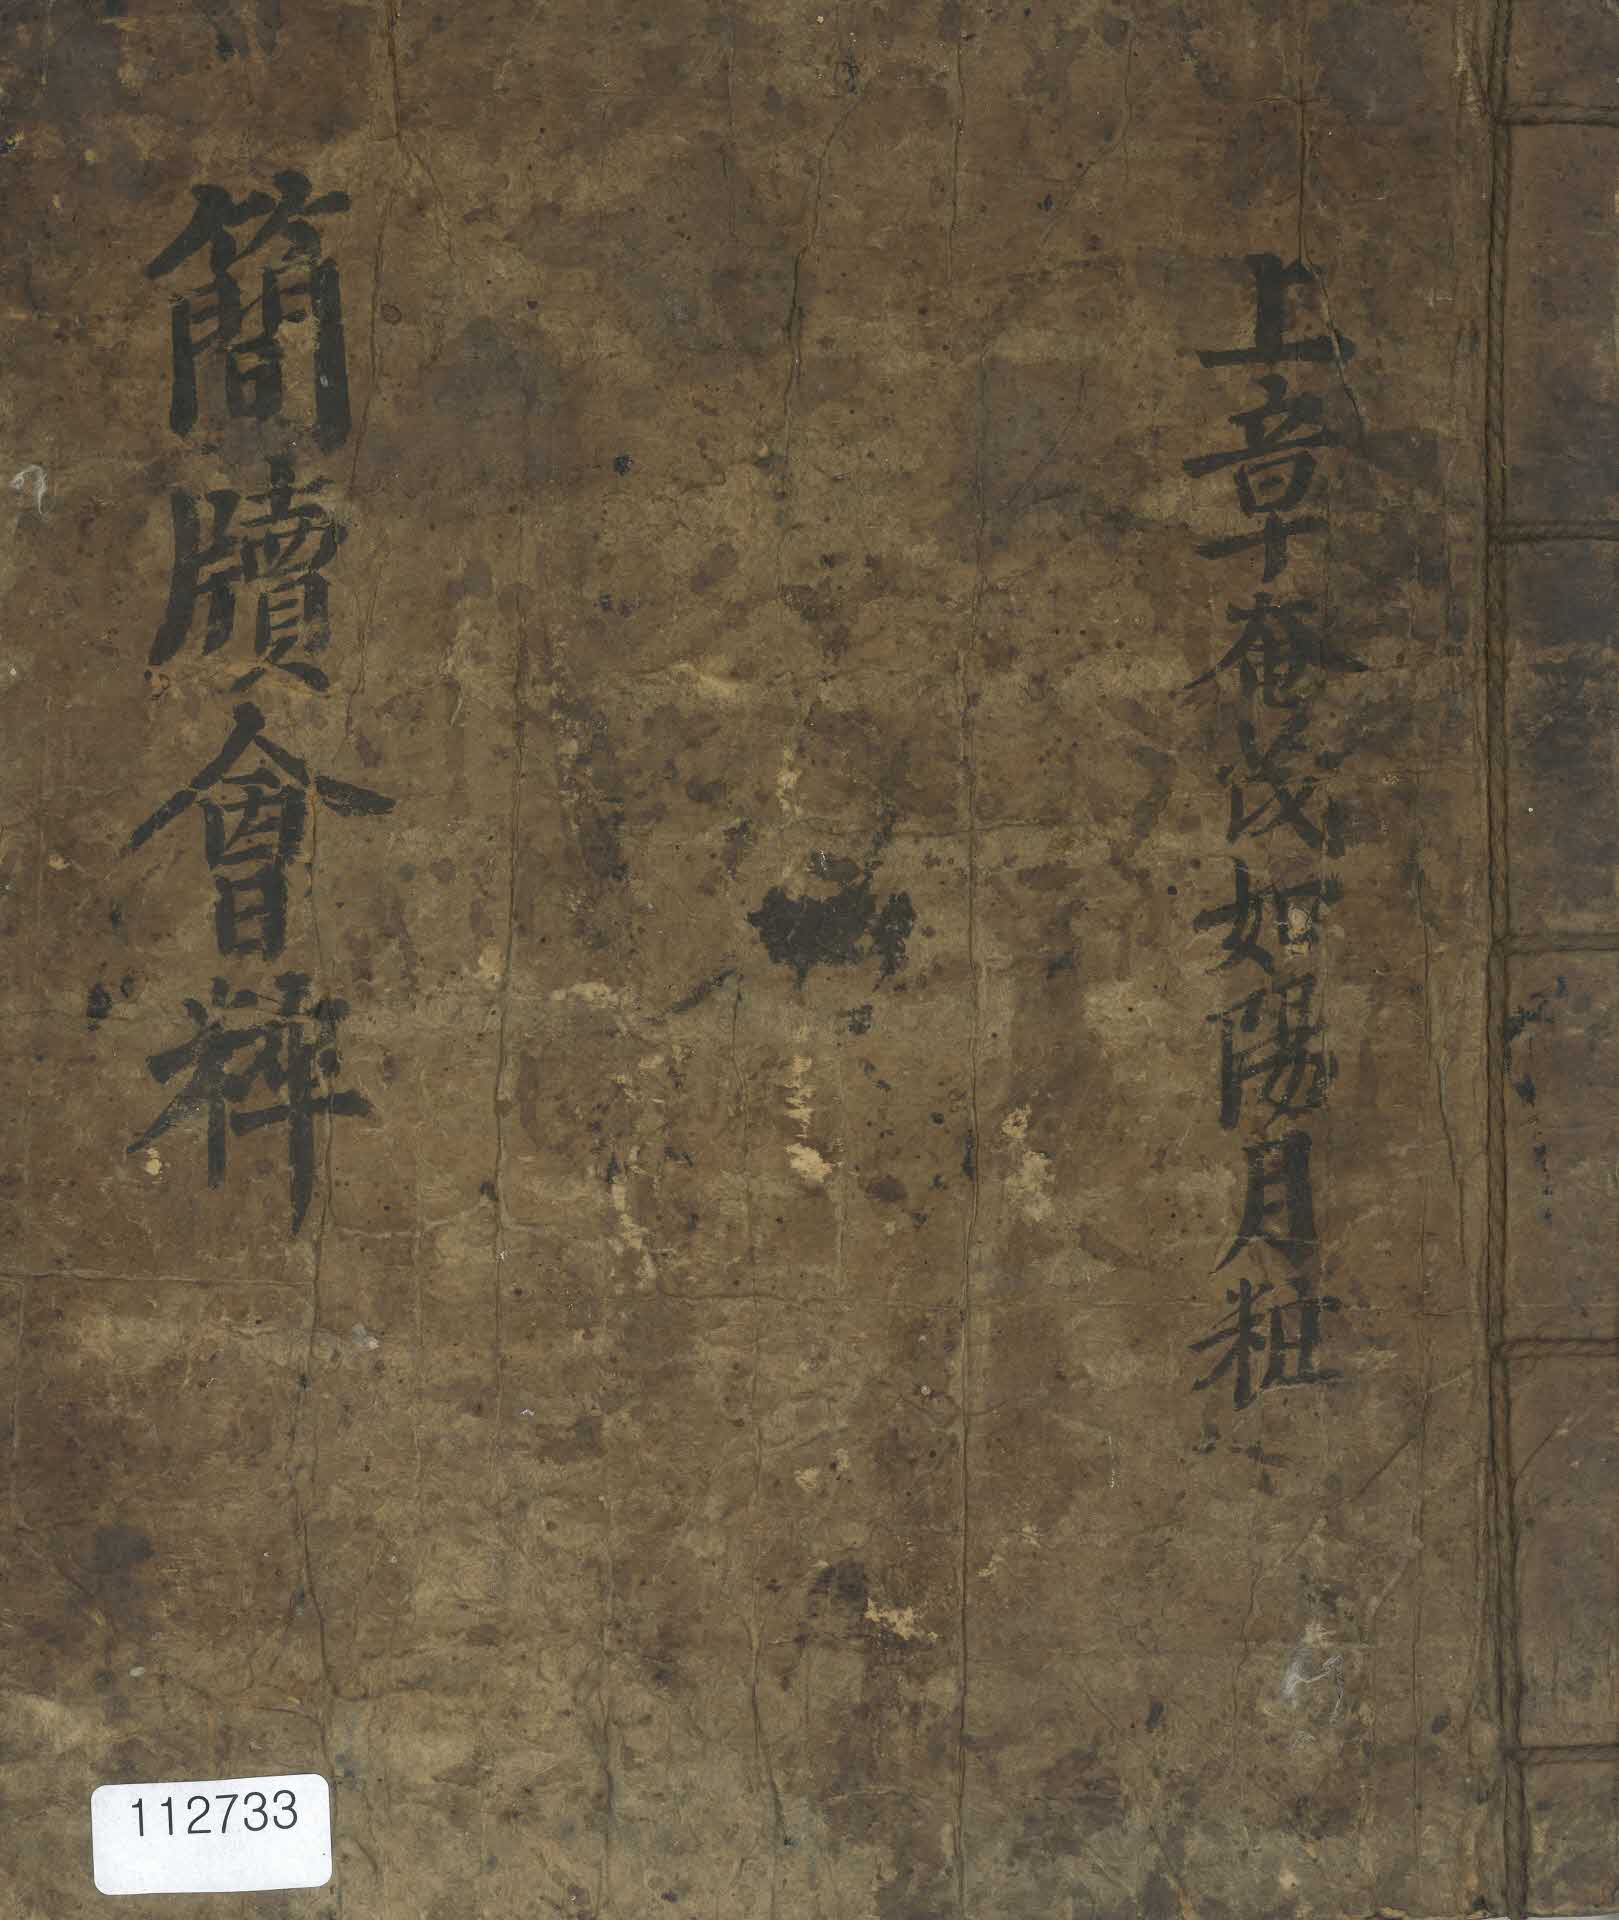 上章奄茂如陽月粧
簡牘會粹
112733